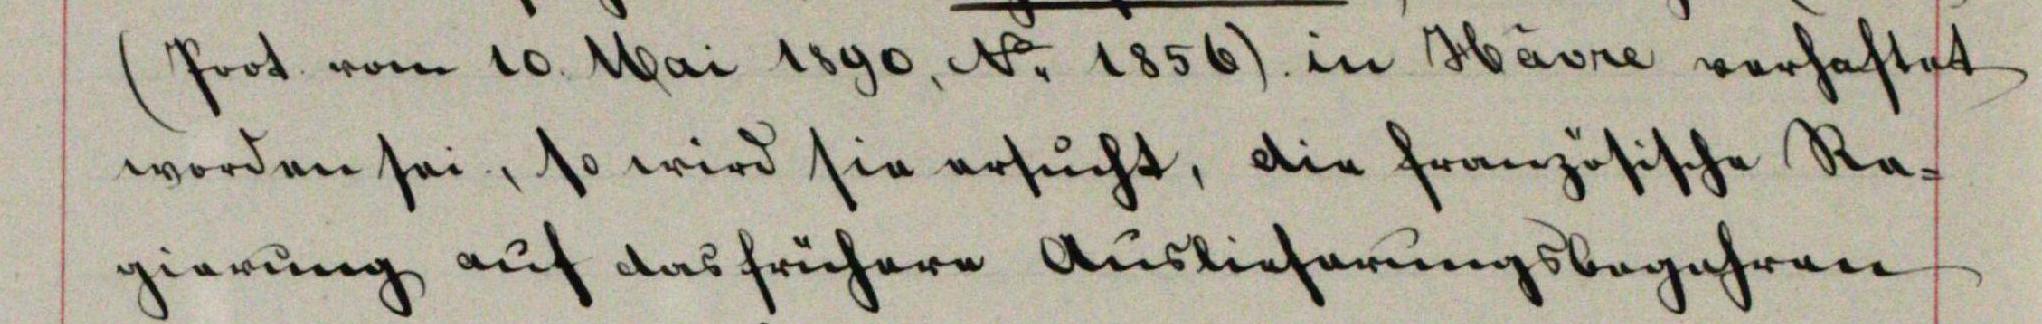 (Prot. vom 10. Mai 1890, No. 1856). in Hâvre verhaftet
worden sei, so wird sie ersucht, die französische Re-
gierung auf das frühere Auslieferungsbegehren